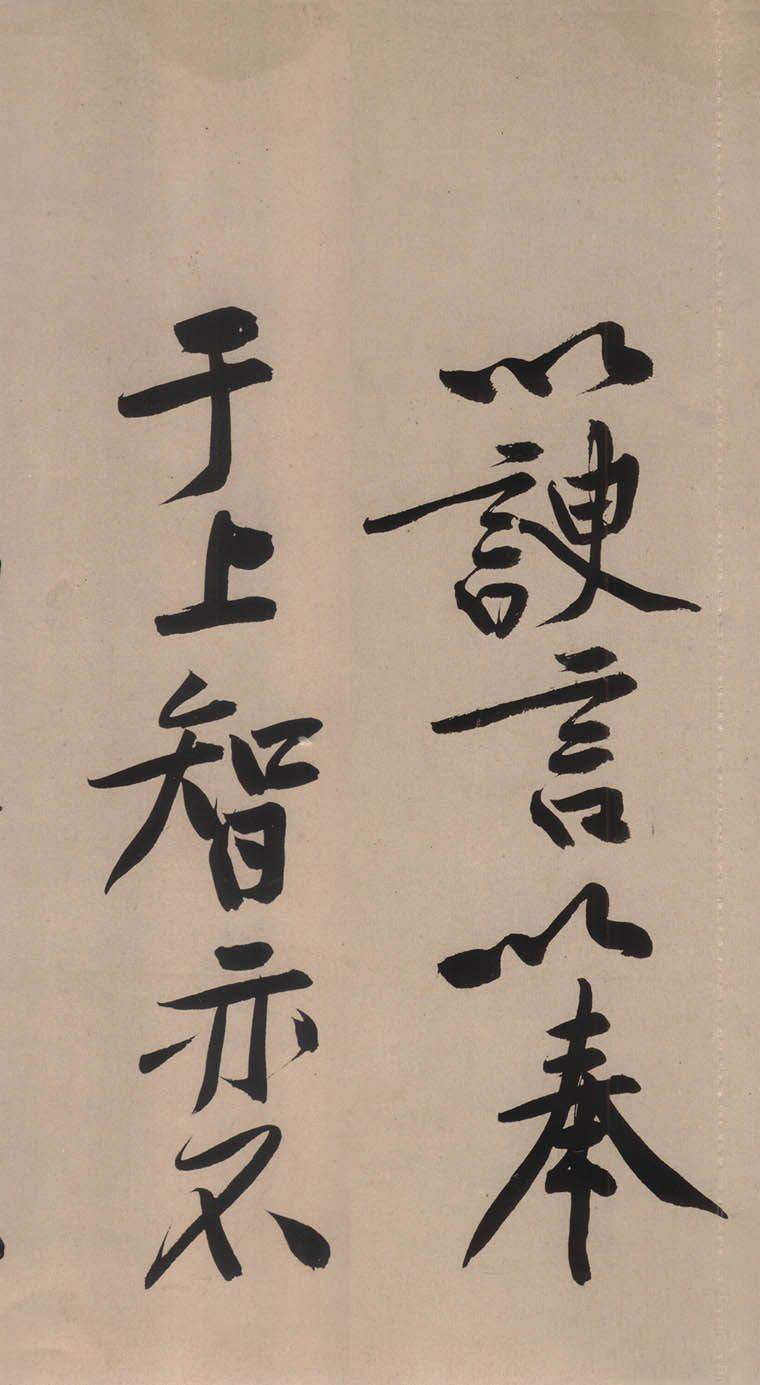 以諛言以奉
于上智亦不